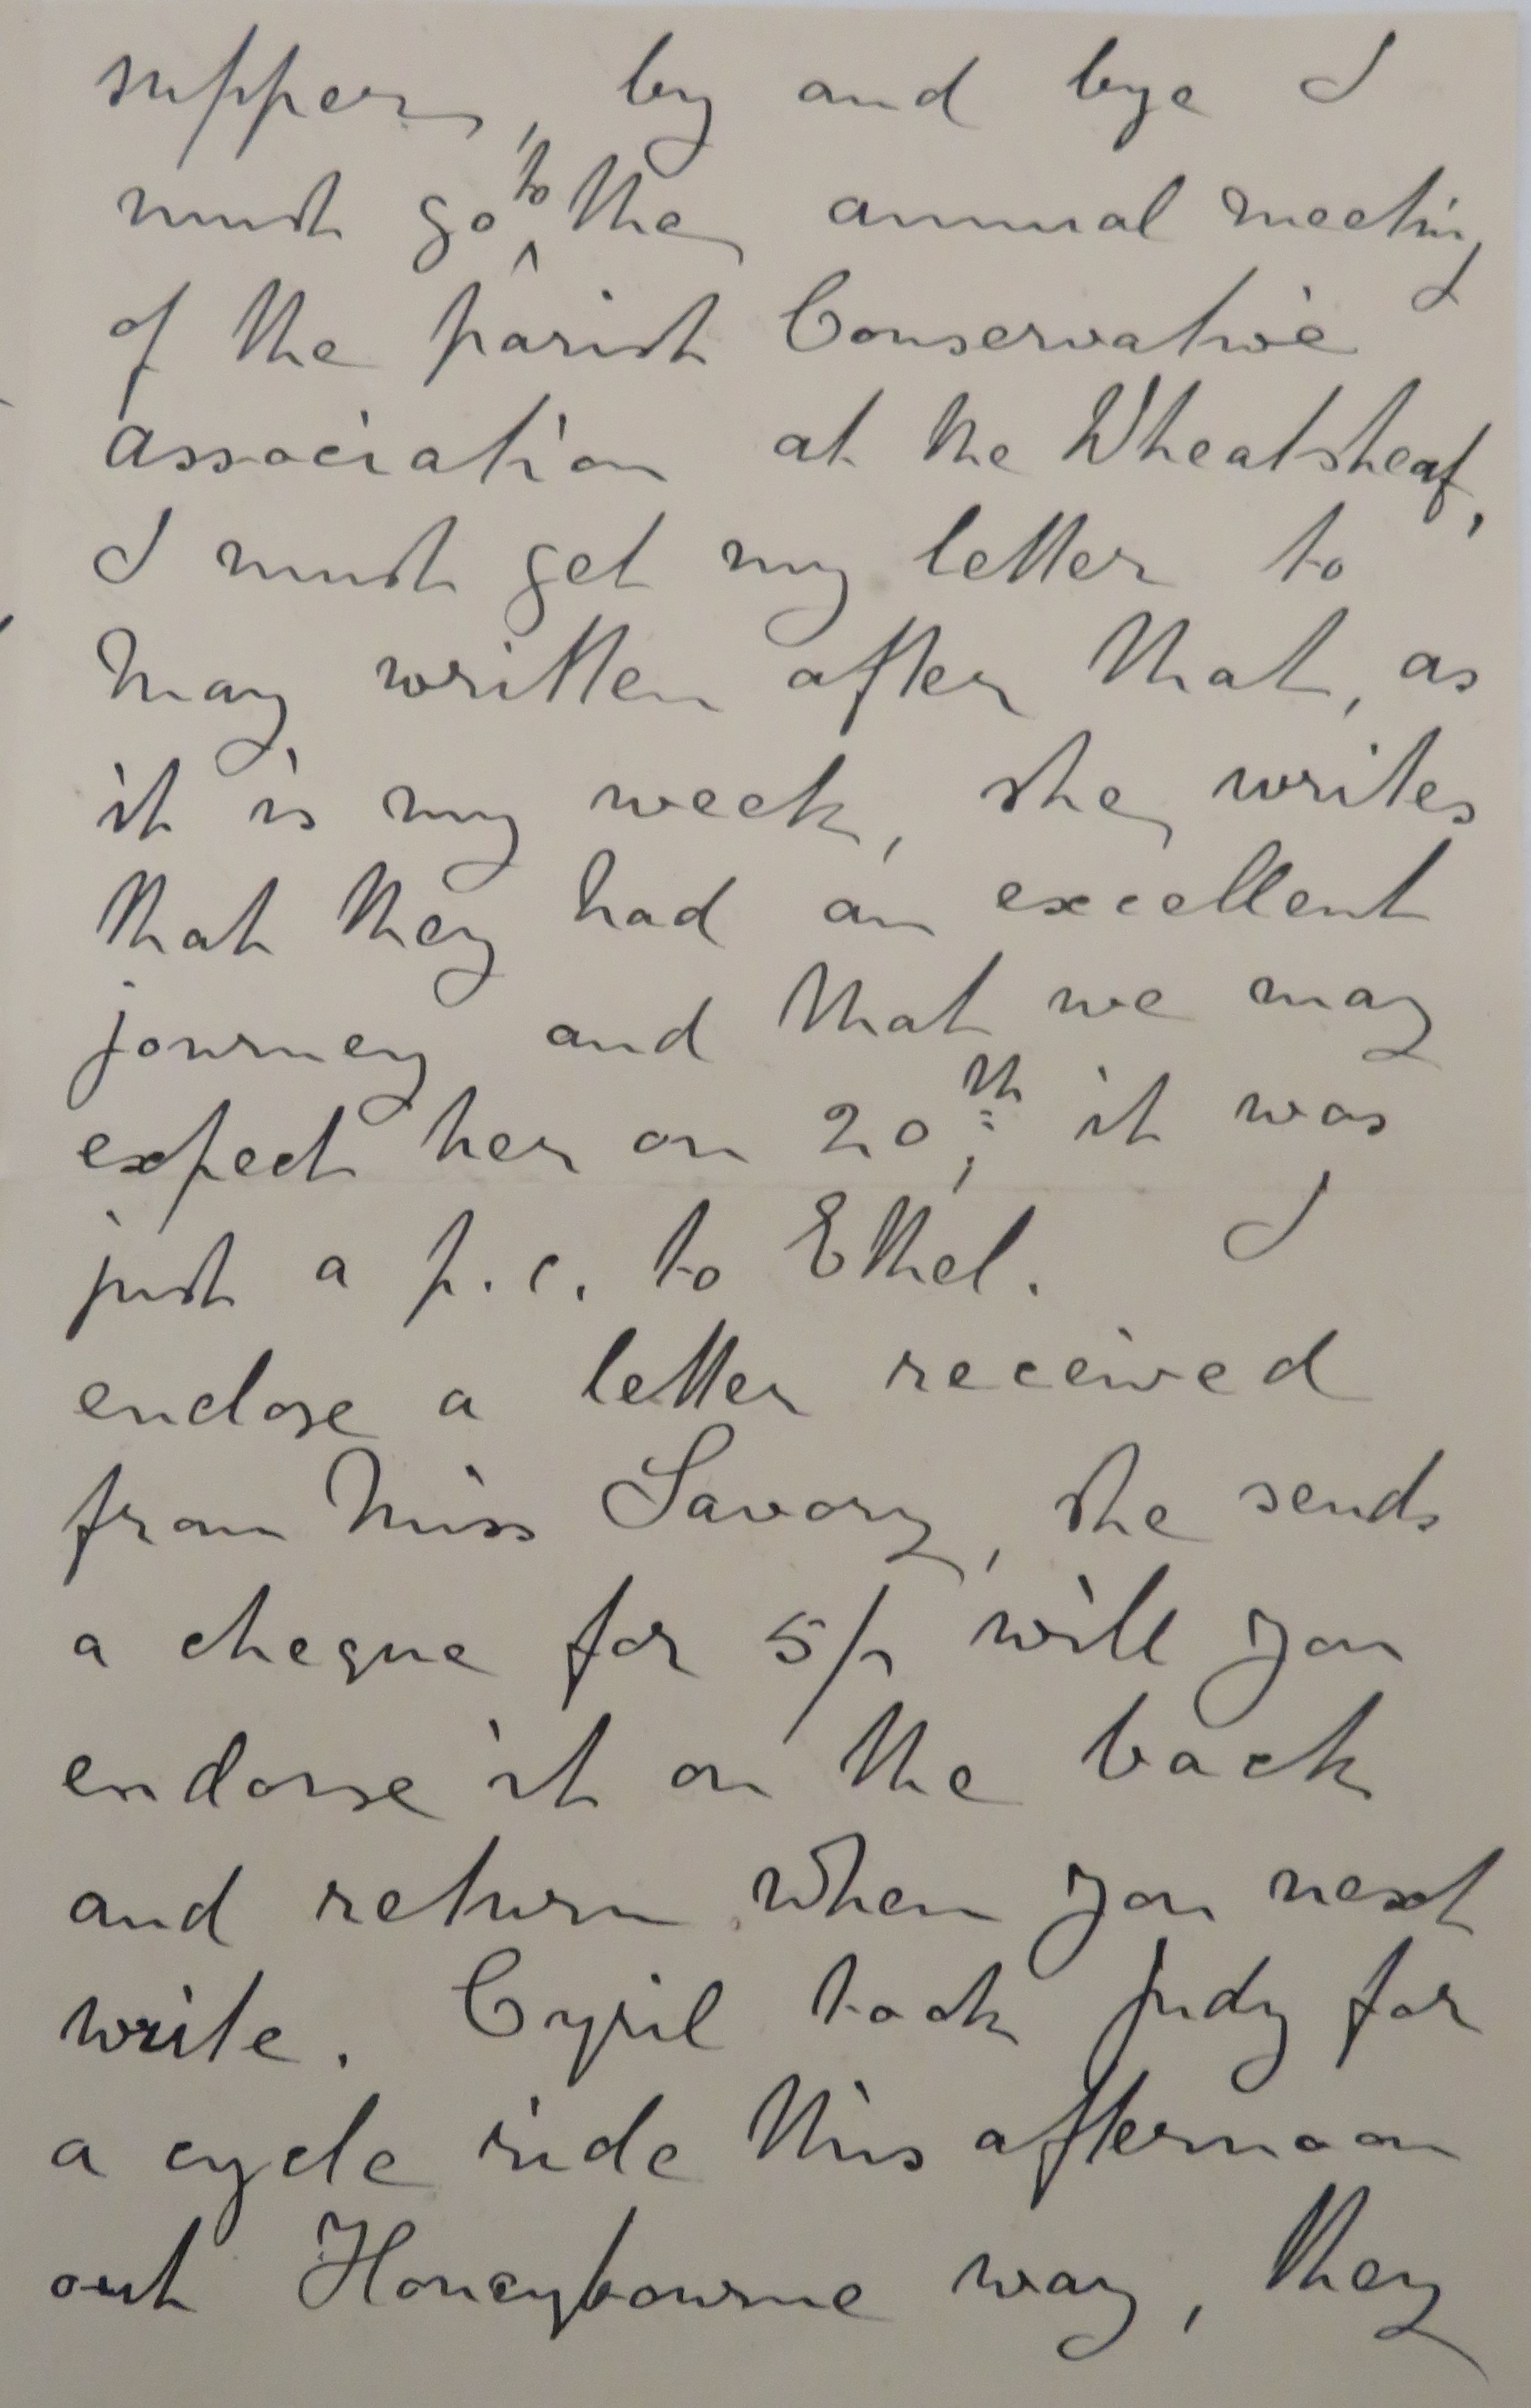 supper, by and bye I
must go to the annual meeting
of the parish Conservative
association at the Wheatsheaf,
I must get my letter to
May written after that, as
it is my week, she writes
that they had an excellent
journey and that we may
expect her on 20th, it was
just a p.c. to Ethel. I
enclose a letter received
from Miss Savory, she sends
a cheque for 5/- will you
endorse it on the back
and return when you next
write. Cyril took Judy for
a cycle ride this afternoon
out Honeybourne way, they